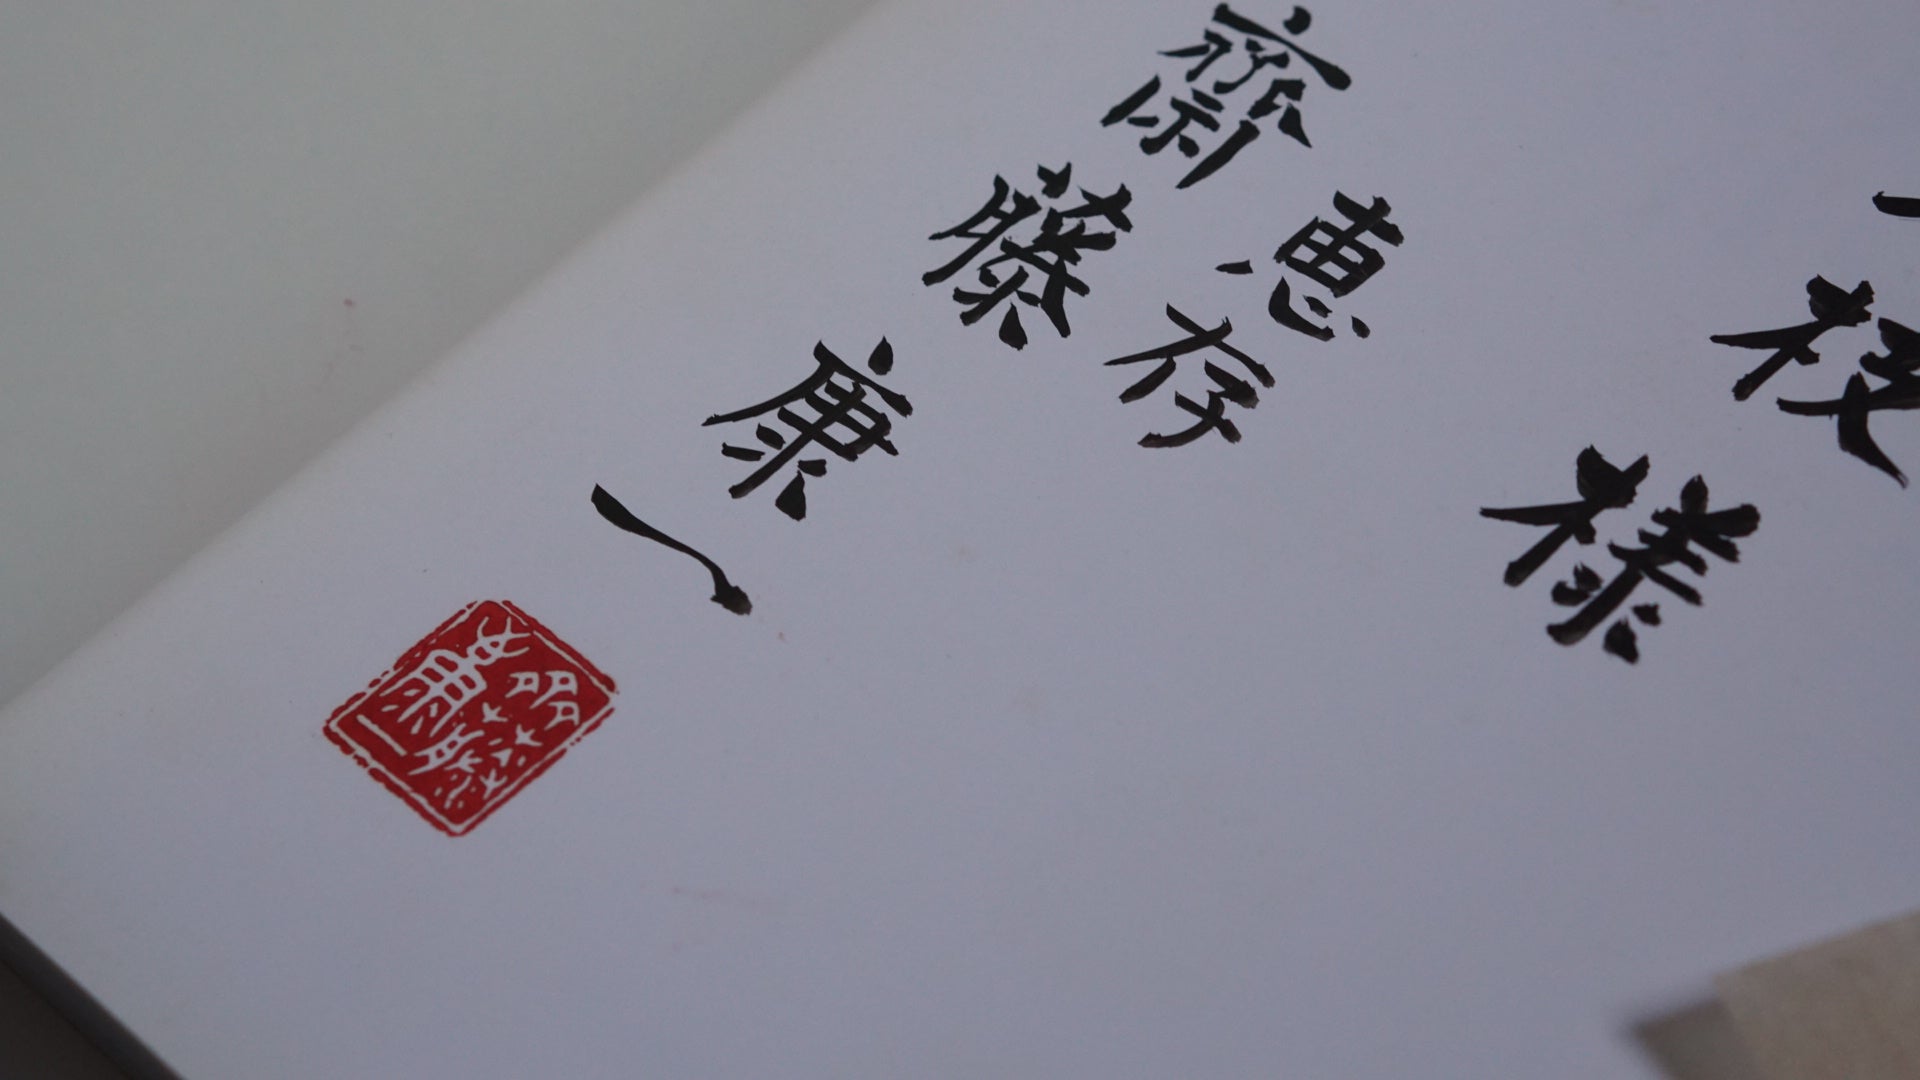 枝様
恵存
齋藤康一